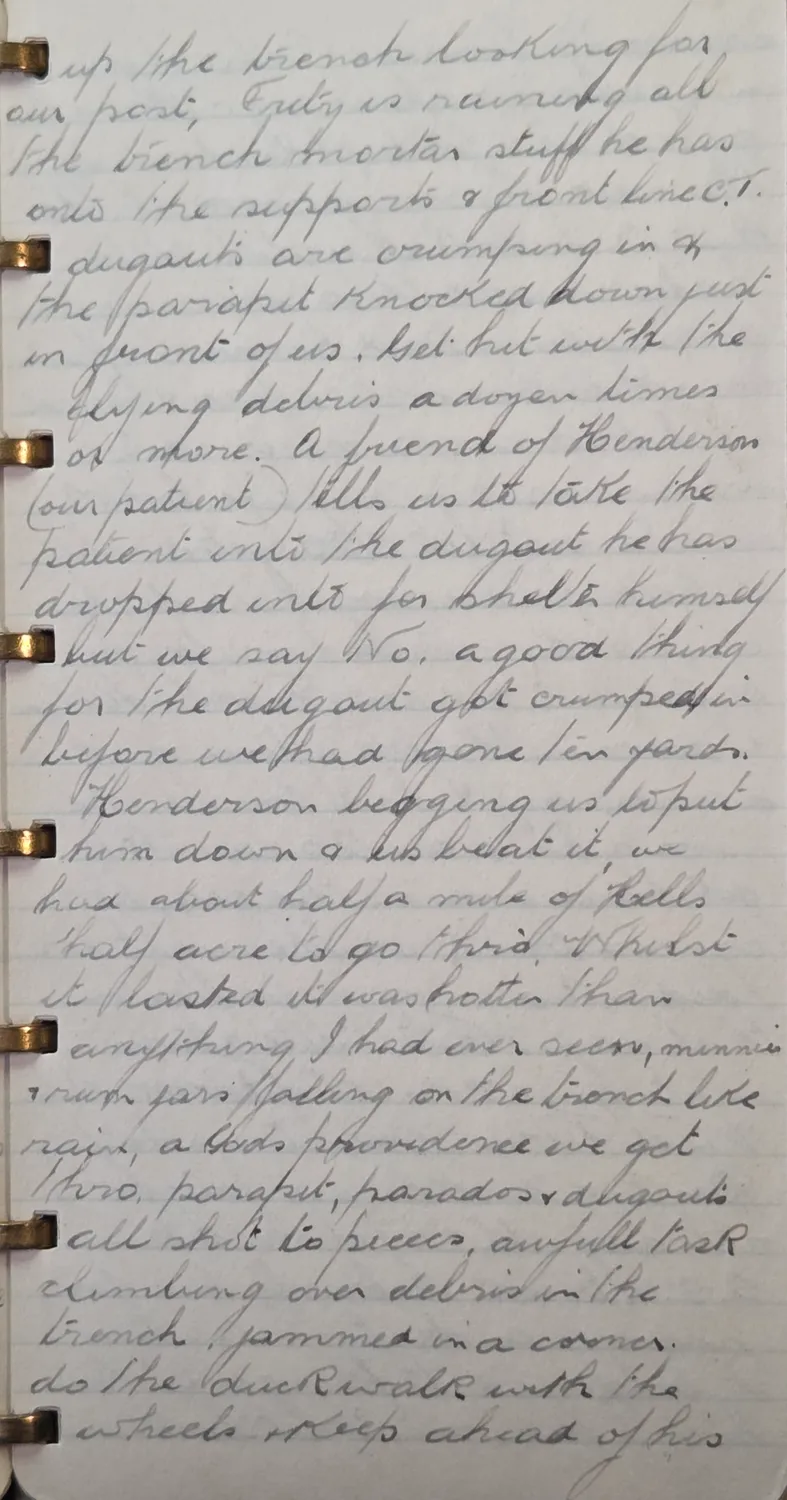 up the trench looking for
our post, Fritz is raining all
the trench mortar stuff he has
onto the supports & front line C.T.
dugouts are crumping in &
the parapet knocked down just
in front of us. Get hit with the
flying debris a dozen times
or more. A friend of Henderson
(our patient) tells us to take the
patient into the dugout he has
dropped into for shelter himself
but we say No. a good thing
for the dugout got crumped in
before we had gone ten yards.
Henderson begging us to put
him down & us beat it, we
had about half a mile of Hells
half acre to go thro. Whilst
it lasted it was hotter than
anything I had ever seen, minnies
& rum jars falling on the trench like
rain, a Gods providence we get
thro. parapet, parados & dugouts
all shot to pieces, awfull task
climbing over debris in the
trench. jammed in a corner.
do the duck walk with the
wheels & keep ahead of his